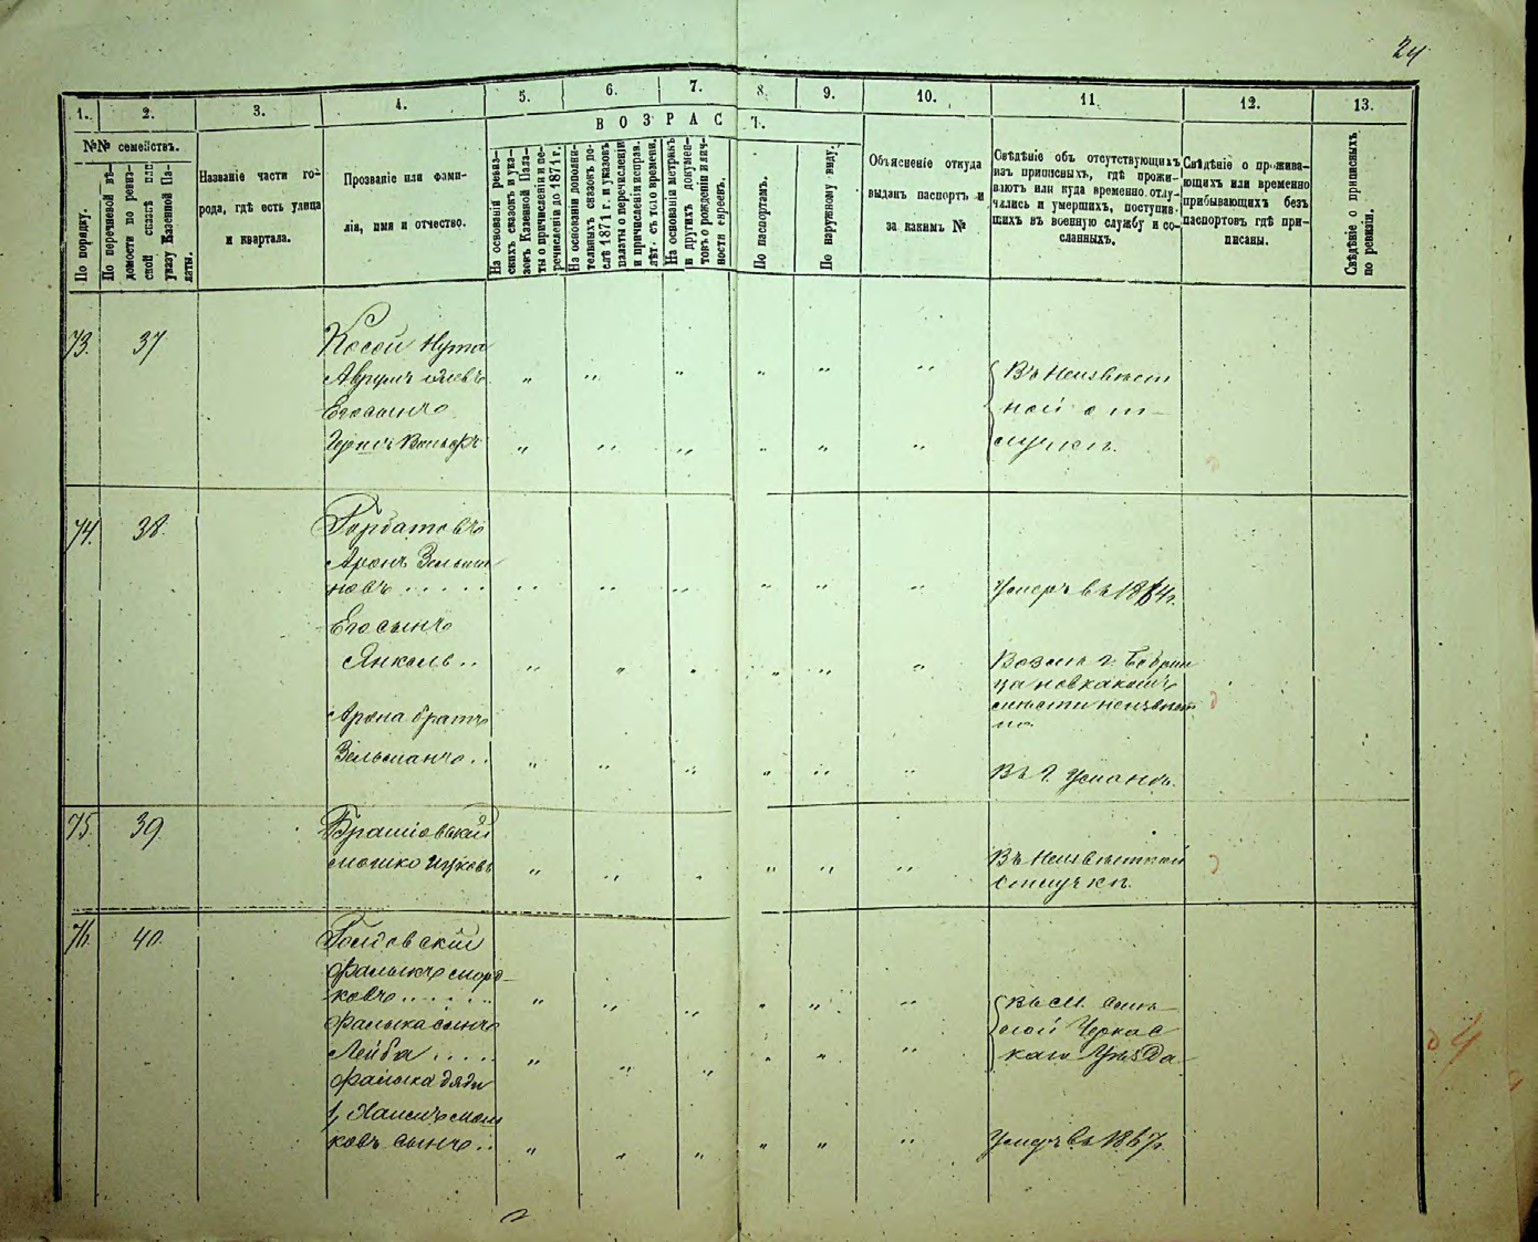 24
1. 2. 3. 4. 5. 6. 7. 8. 9. 10. 11. 12. 13.
№№ семействъ.
По порядку.
По перечневой вѣ-
домости по ревиз-
ской сказкѣ или
указу Казенной Па-
латы.
Названіе части го-
рода, гдѣ есть улица
и квартала.
Прозваніе или фами-
лія, имя и отчество.
ВОЗРАСТ.
На основаніи ревиз-
скихъ сказокъ и ука-
зовъ Казенной Пала-
ты о причисленіи и пе-
речисленіи до 1871 г.
На основаніи дополни-
тельныхъ сказокъ по-
слѣ 1871 г. и указовъ
палаты о перечисленіи
и причисленіи исправ.
лѣт. съ того времени.
На основаніи метрикъ
и другихъ докумен-
товъ о рожденіи и лич-
ности евреевъ.
По паспортамъ.
По наружному виду.
Объясненіе откуда
выданъ паспортъ и
за какимъ №
Свѣдѣніе объ отсутствующихъ
изъ приписныхъ, гдѣ прожи-
ваютъ или куда временно отлу-
чились и умершихъ, поступив-
шихъ въ военную службу и со-
сланныхъ.
Свѣдѣніе о прожива-
ющихъ или временно
прибывающихъ безъ
паспортовъ гдѣ при-
писаны.
Свѣдѣніе о приписныхъ
по ревизіи.
73. 37
Косой Нута
Аврумъ
Его сынъ
Вольфъ
Въ Неизвѣст
ной от-
лучкѣ.
74. 38.
Горбатовъ
Аронъ Зельма
новъ
Умеръ въ 1864г.
Его сынъ
Янкель
Возлѣ г. Бобрин
ца
неизвѣст
но.
Арона братъ
Зельманъ
Въ г. Умани.
75. 39
Брашовский
Мошко Ицковъ
Въ Неизвѣстной
Отлучки.
76. 40.
Голдовский
Фалыкъ Морд-
ковъ
Фалыка сынъ
Лейба
Въ м.
Черкас
каго Уѣзда
Фалыка дяди
1, Хаимъ Мош
ковъ сынъ
Умеръ въ 1867г.